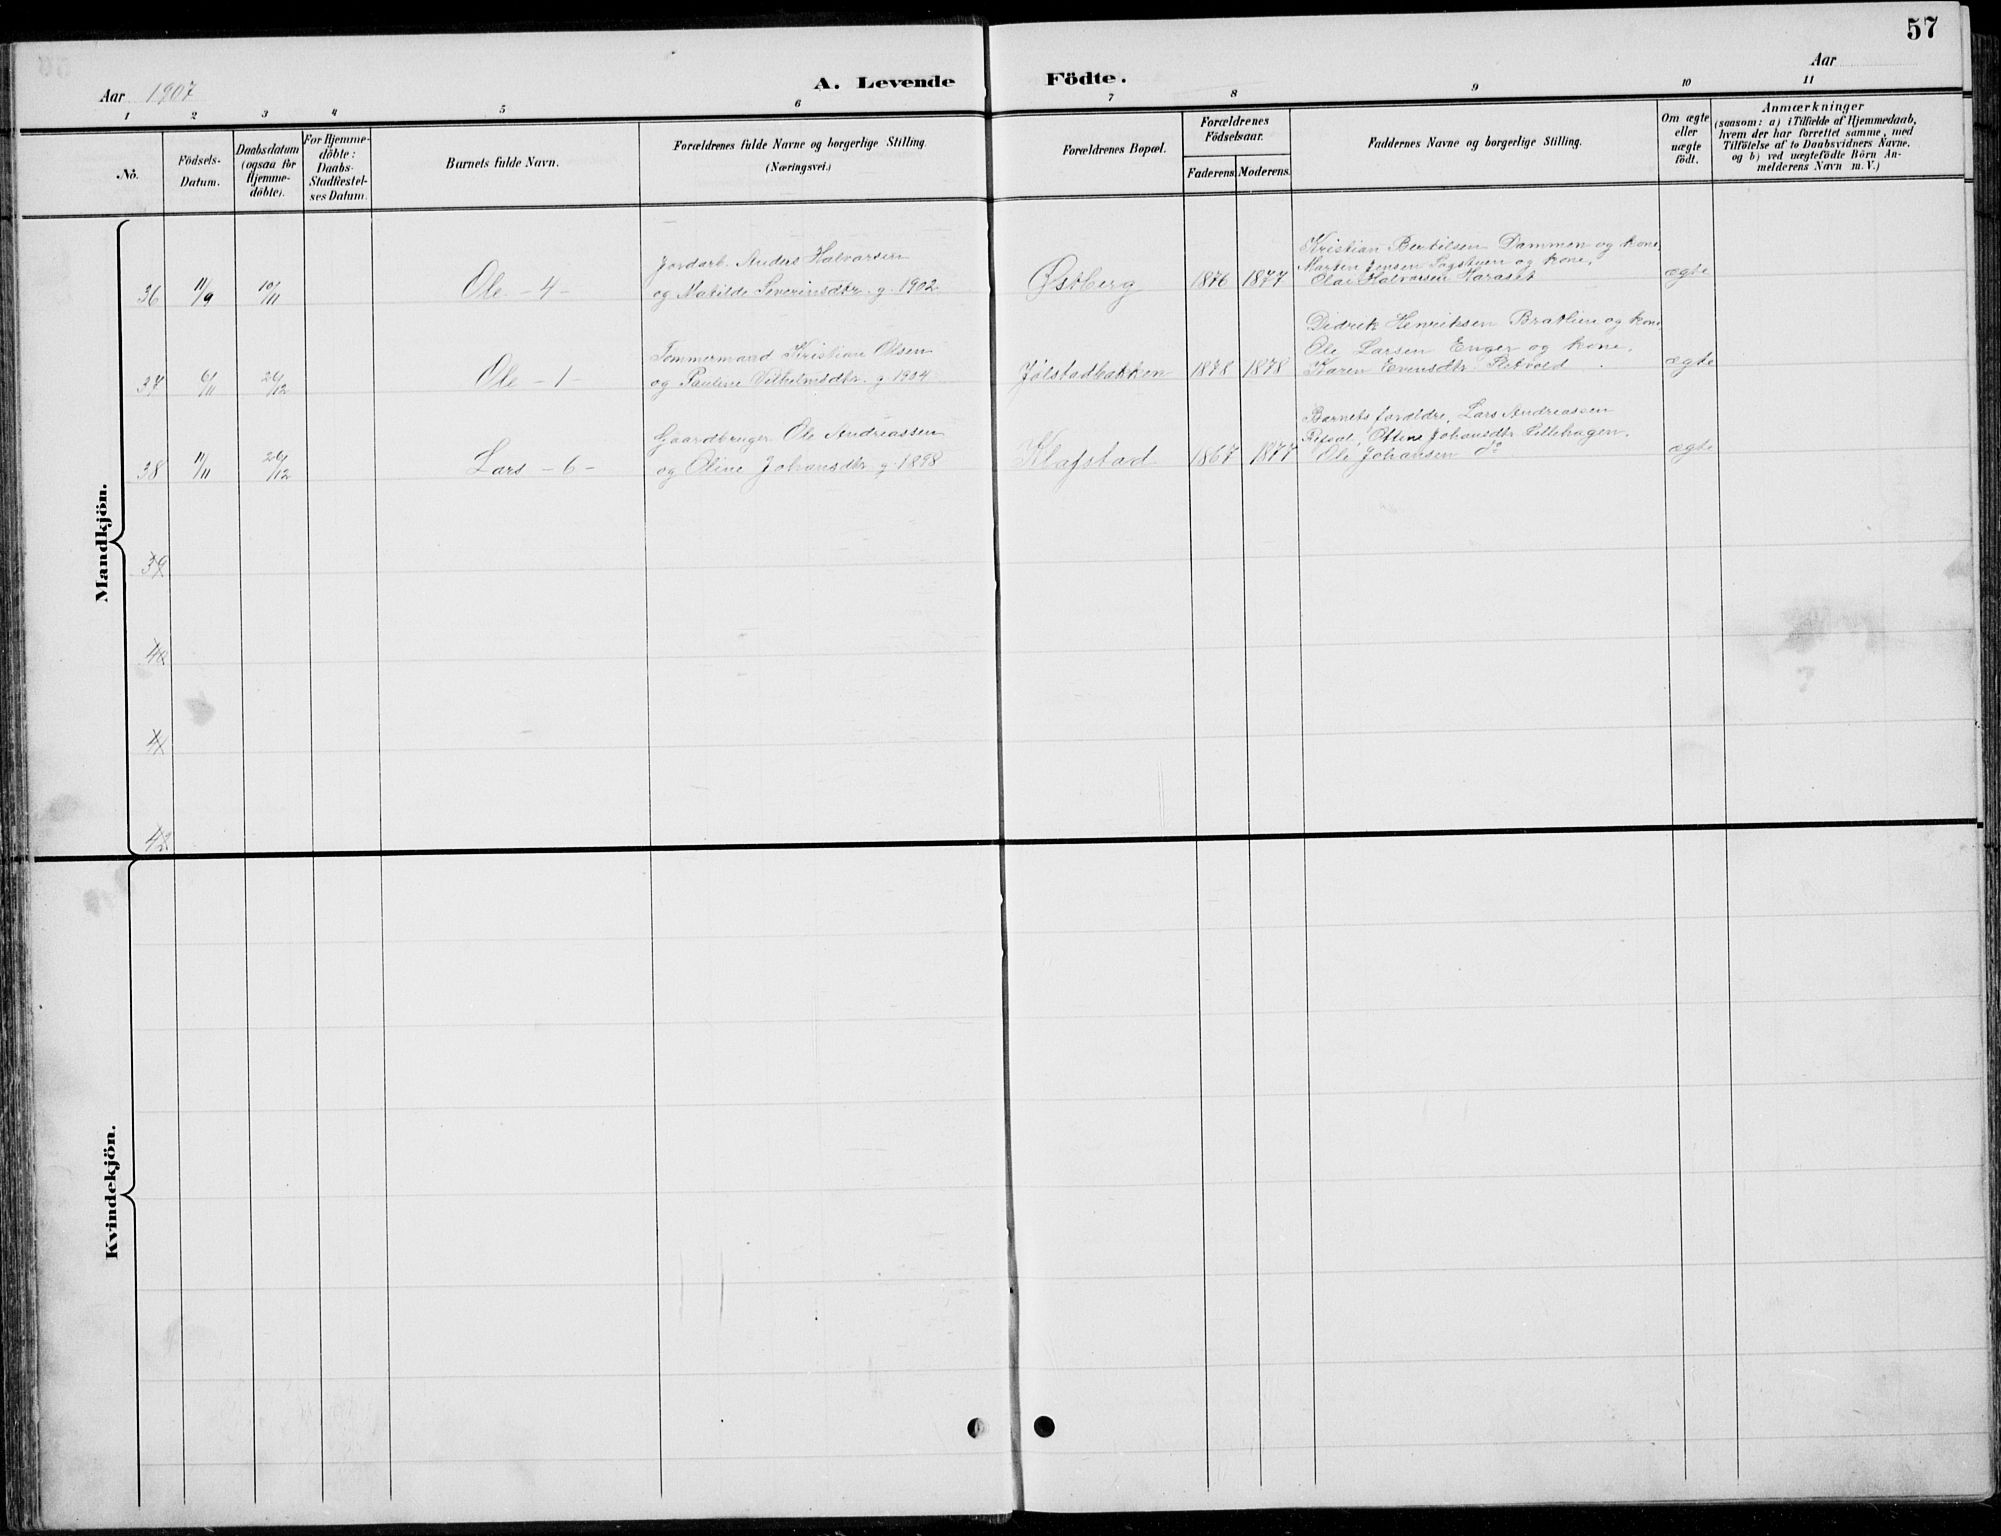 57
Aar 1907
A. Levende Födte.
Aar
1 2 3 4 5 6 7 8 9 10 11
No.
Födsels-
Datum.
Daabsdatum
(ogsaa for
Hjemme-
döbte).
For Hjemme-
döbte:
Daabs-
Stadfæstel-
ses Datum.
Barnets fulde Navn.
Forældrenes fulde Navne og borgerlige Stilling.
(Næringsvei.)
Forældrenes Bopæl.
Forældrenes
Födselsaar.
Faderens. Moderens.
Faddernes Navne og borgerlige Stilling.
Om ægte
eller
uægte
födt.
Anmærkninger
(saasom: a) i Tilfælde af Hjemmedaab,
hvem der har forrettet samme, med
Tilföielse af to Daabsvidners Navne,
og b) ved uægtefödte Börn An-
melderens Navn m. V.)
Mandkjön.
36 11/9 10/11 Ole - 4 -
Jordarb. Anders Halvorsen
og Matilde Severinsdtr. g. 1902
Østberg 1876 1877
Kristian Bertilsen Dammen og kone
Marten Jensen Sagstuen og kone,
Olai Halvorsen Haraset
ægte
37 6/11 26/12 Ole - 1 -
Tømmermand Kristian Olsen
og Pauline Vilhelmsdtr. g. 1904
Jølstadbakken 1878 1878
Didrik Henriksen Bratlien og kone
Ole Larsen Enger og kone.
Karen Evensdtr.
ægte
38 11/11 26/12 Lars - 6 -
Gaardbruger Ole Andreassen
og Oline Johansdtr. g. 1898
Klafstad 1867 1877
Barnets forældre, Lars Andreassen
Oline Johansdtr Lillehagen.
Ole Johansen do
ægte
39
40
41
42
Kvindekjön.